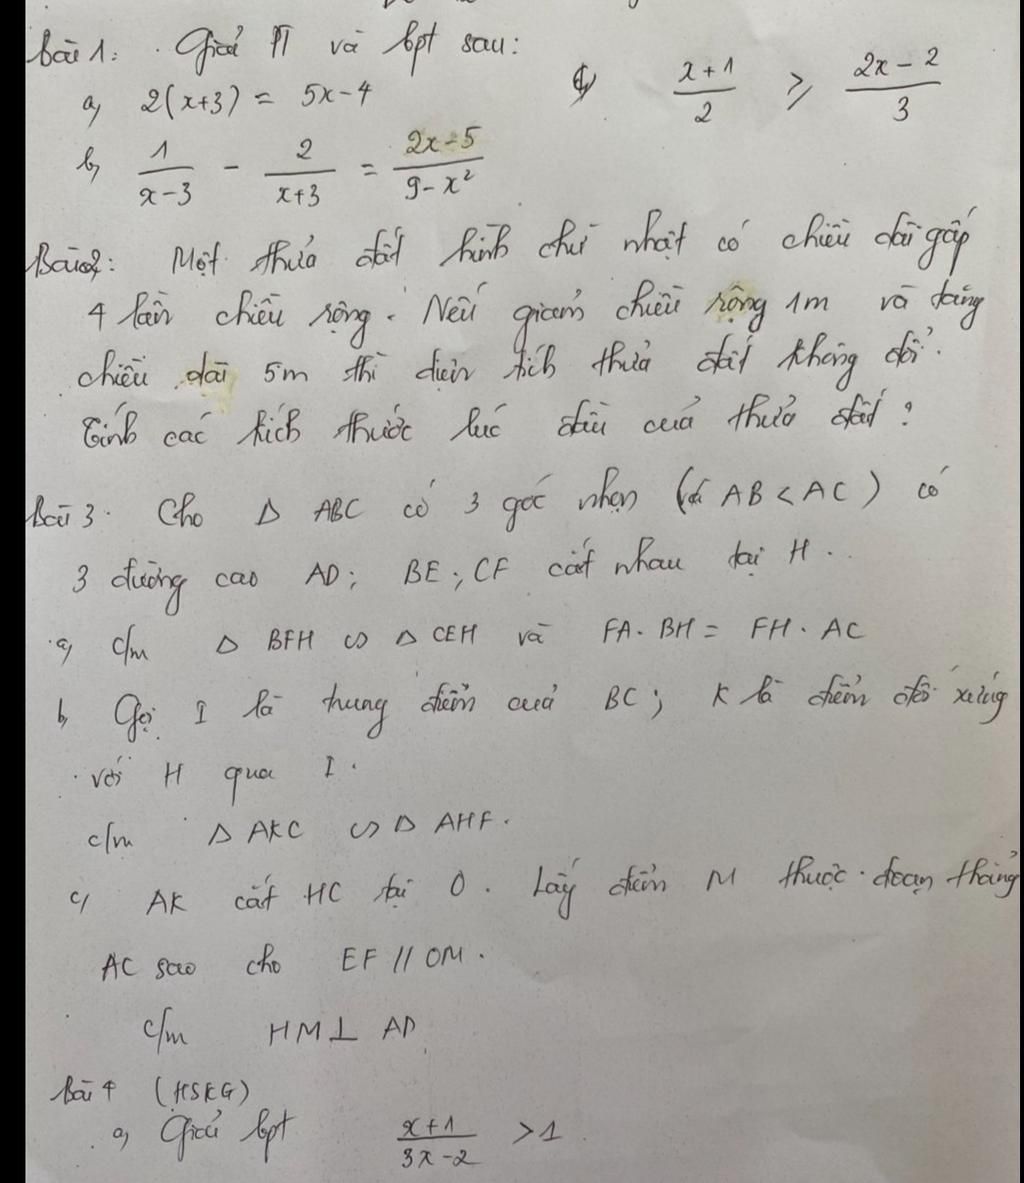 Bài 1: Giải PT và bpt sau:
a, 2(x+3) = 5x-4
c, (x+1)/2 ≥ (2x-2)/3
b, 1/(x-3) - 2/(x+3) = (2x-5)/(9-x²)
Bài 2: Một thửa đất hình chữ nhật có chiều dài gấp
4 lần chiều rộng. Nếu giảm chiều rộng 1m và tăng
chiều dài 5m thì diện tích thửa đất không đổi.
Tính các kích thước lúc đầu của thửa đất?
Bài 3. Cho Δ ABC có 3 góc nhọn ( AB < AC ) có
3 đường cao AD; BE; CF cắt nhau tại H.
a, c/m Δ BFH ∽ Δ CEH và FA. BH = FH. AC
b, Gọi I là trung điểm của BC; K là điểm đối xứng
với H qua I.
c/m Δ AKC ∽ Δ AHF.
c, AK cắt HC tại O. Lấy điểm M thuộc đoạn thẳng
AC sao cho EF // OM.
c/m HM ⊥ AD
Bài 4 (HSKG)
a, Giải bpt (x+1)/(3x-2) > 1